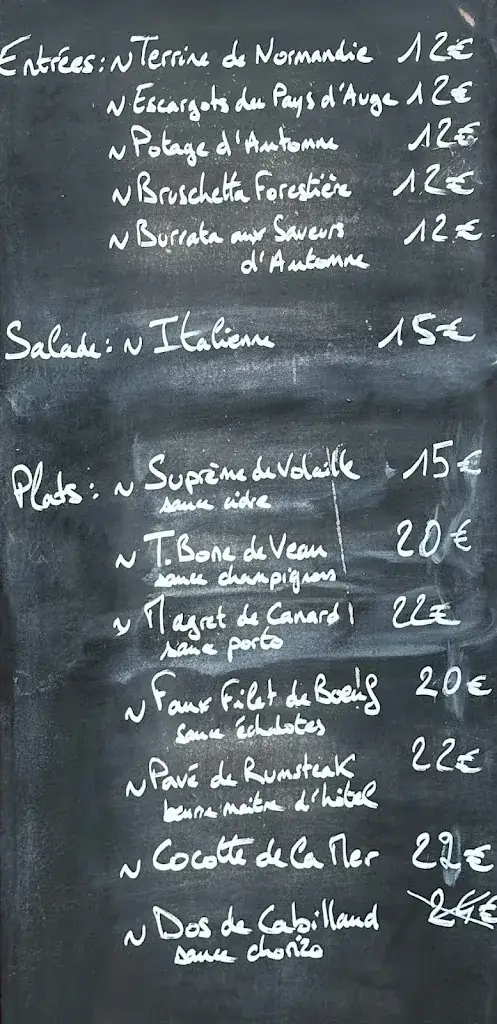 Entrées: ~ Terrine de Normandie 12€
~ Escargots du Pays d'Auge 12€
~ Potage d'Automne 12€
~ Bruschetta Forestière 12€
~ Burrata aux Saveurs 12€
d'Automne
Salade: ~ Italienne 15€
Plats: ~ Suprême de Volaille 15€
sauce cidre
~ T.Bone de Veau 20€
sauce champignons
~ Magret de Canard 22€
sauce porto
~ Faux Filet de Boeuf 20€
sauce échalotes
~ Pavé de Rumsteak 22€
beurre maitre d'hôtel
~ Cocotte de la Mer 22€
~ Dos de Cabillaud 24€
sauce chorizo